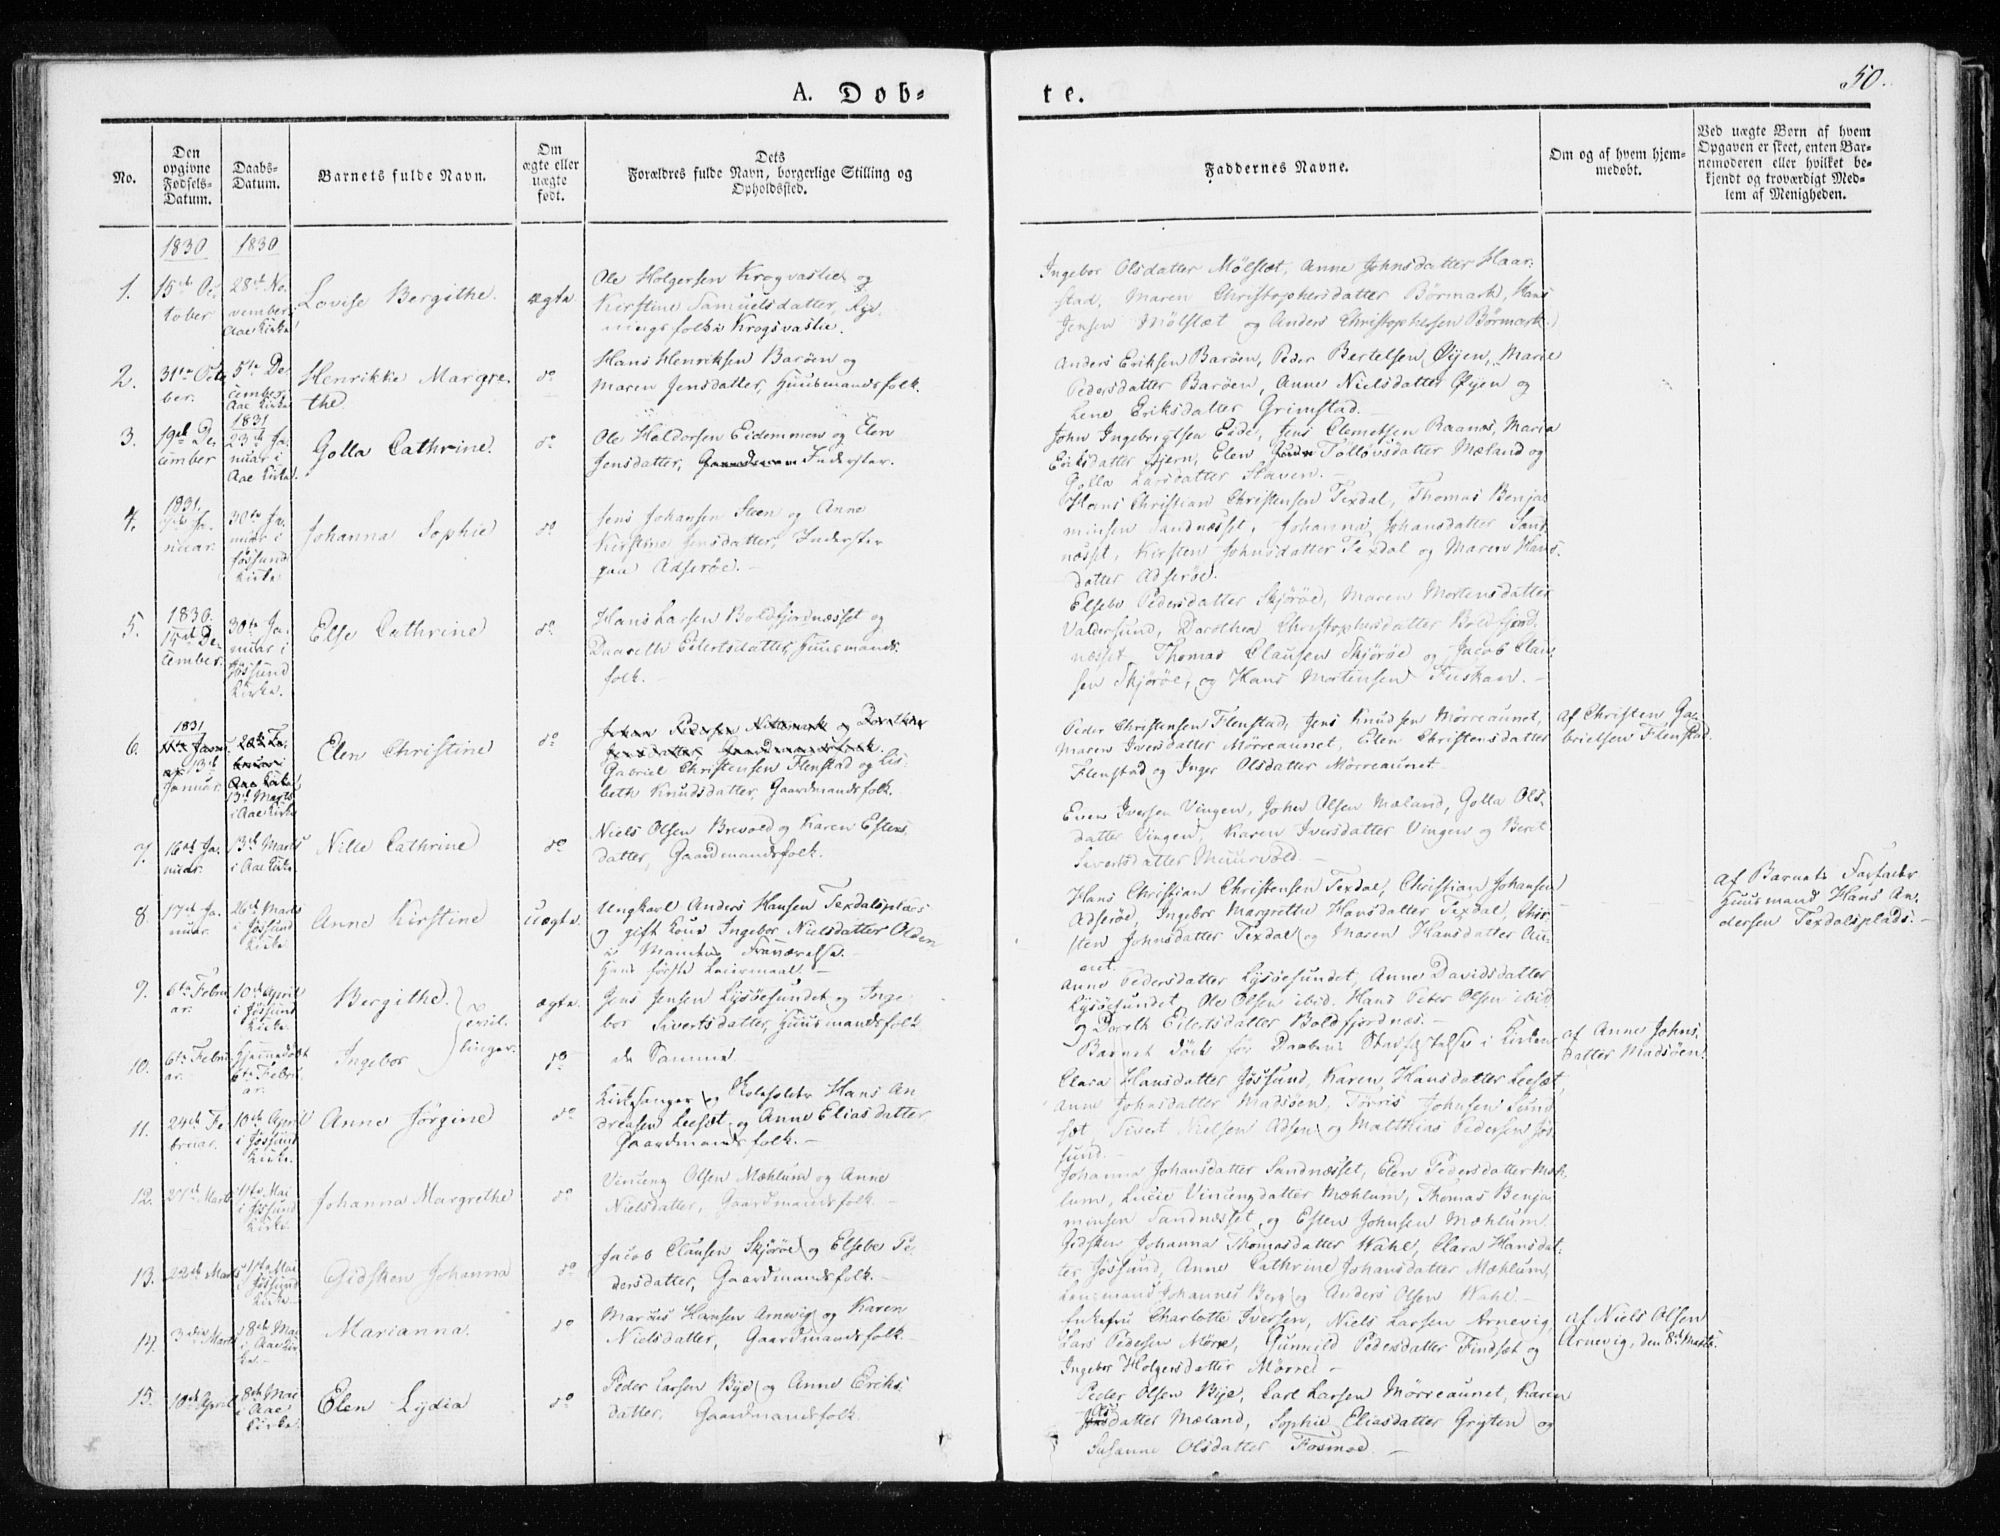 50.
A. Døb-
te.
No.
Den
opgivne
Fødsels-
Datum.
Daabs-
Datum.
Barnets fulde Navn.
Om
ægte eller
uægte
født.
Dets
Forældres fulde Navn, borgerlige Stilling og
Opholdssted.
Faddernes Navne.
Om og af hvem hjem-
medøbt.
Ved uægte Børn af hvem
Opgaven er skeet, enten Bar-
nemoderen eller hvilket be-
kjendt og troværdigt Med-
lem af Menigheden.
1830
1830
1.
15de Oc
tober
28de No
vember
Aae Kirke
Lovise Bergithe.
ægte
Ole Holgersen Krogvaslie og
Kirstine Samuelsdatter,
folk i Krogsvaslie.
Ingebor Olsdatter Mølslæt, Anne Johnsdatter Haar-
stad, Maren Christophersdatter Børmark, Hans
Jensen Mølslæt og Anders Christophersen Børmark.
2.
31te Octo
ber.
5te De
cember,
Aae Kirke
Henrikke Margre-
the.
do
Hans Henriksen Barøen og
Maren Jensdatter, Huusmandsfolk.
Anders Eriksen Barøen, Peder Bertelsen Øyen, Marie
Pedersdatter Barøen, Anne Nielsdatter Øyen og
Lene Eriksdatter Grimstad.
3.
19de De
cember
1831
23de Ja
nuar i
Aae Kirke.
Golla Cathrine.
do
Ole Haldorsen Eidemmen og Elen
Jensdatter, Inderster.
John Ingebrigtsen Eide, Jens Clemetsen Raanæs, Maria
Eriksdatter Stjern, Elen Tølløvsdatter Mæland og
Golla Larsdatter Staven.
4.
1831.
Ja
nuar.
30te Ja
nuar i
Jøssund
Kirke
Johanna Sophie
do
Jens Johansen Steen og Anne
Kirstine Jensdatter, Inderster
paa Adserøe.
Hans Christian Christensen Texdal, Thomas Benja
minsen Sandnæsset, Johanna Johansdatter Sand
næsset, Kirsten Johnsdatter Texdal og Maren Hans
datter Adserøe.
5.
1830.
15de De
cember.
30te Ja
nuar i
Jøssund
Kirke.
Else Cathrine
do
Hans Larsen Boldfjordnæsset og
Daareth Eilertsdatter, Huusmands
folk.
Elsebe Pedersdatter Skjørøe, Maren Mortensdatter
Valdersund, Dorothea Christophersdatter Boldfjord
næsset, Thomas Clausen Skjørøe og Jacob Clau
sen Skjørøe, og Hans Mortensen Fuskan.
6.
1831
13de
Januar.
13de Marts
i Aae Kirke
Elen Christine
do
Gabriel Christensen Flenstad og Lis-
beth Knudsdatter, Gaardmandsfolk.
Peder Christensen Flenstad, Jens Knudsen Mørreaunet,
Maren Iversdatter Mørreaunet, Elen Christensdatter
Flenstad og Inger Olsdatter Mørreaunet.
af Christen Ga-
brielsen Flenstad.
7.
16de Ja
nuar.
13de Marts
i Aae Kirke.
Nille Cathrine
do
Niels Olsen Brevold og Karen Estens
datter, Gaardmandsfolk.
Even Iversen Vingen, John Olsen Mæland, Golla Ols
datter Vingen, Karen Iversdatter Vingen og Beret
Sivertsdatter Muurvold.
8.
17de Ja
nuar.
26de Marts
i Jøssund
Kirke.
Anne Kirstine
Uægte
Ungkarl Anders Hansen Texdalsplads
og gift Kone Ingebor Nielsdatter Olden
i Mandens Fraværelse.
Hans første Leiermaal.
Hans Christian Christensen Texdal, Christian Johansen
Adserøe, Ingebor Margrethe Hansdatter Texdal, Kir
sten Johnsdatter Texdal og Maren Hansdatter Au-
net.
af Barnets Farfader
Huusmand Hans An-
dersen Texdalsplads.
9.
6te Febru
ar.
10de April
i Jøssund
Kirke.
Bergithe.
tvil
linger.
ægte.
Jens Jensen Lysøesundet og Inge
bor Sivertsdatter, Huusmandsfolk
Anne Pedersdatter Lysøesundet, Anne Davidsdatter
Lysøesundet, Ole Olsen ibid. Hans Peter Olsen ibid
og Doreth Eilertsdatter Boldfjordnæs.
10.
6te Febru
ar.
hjemmedøbt
6te Febru
ar.
Ingebor
do
de Samme
Barnet døde før Daabens Stadfæstelse i Kirken
af Anne Johns
datter Madsøen
11.
24de Fe
bruar.
10de April
i Jøssund
Kirke.
Anne Jørgine
do
Kirkesanger og Skoleholder Hans An
dreasen Leeset og Anne Eliasdatter
Gaardmandsfolk.
Clara Hansdatter Jøssund, Karen Hansdatter Leeset,
Anne Johnsdatter Madsøen, Tørris Johnsen Sund
sæt, Sivert Nielsen Adsen og Matthias Pedersen Jøs
sund.
12.
Marts
11te Mai
i Jøssund
Kirke.
Johanna Margrethe
do
Vinceng Olsen Mæhlum og Anne
Nielsdatter, Gaardmandsfolk.
Johanna Johansdatter Sandnæsset, Elen Pedersdatter Mæh-
lum, Lucie Vincengdatter Mæhlum, Thomas Benja
minsen Sandnæsset, og Esten Johnsen Mæhlum.
13.
22de Marts
11te Mai
i Jøssund
Kirke.
Gidsken Johanna
do
Jacob Clausen Skjørøe og Elsebe Pe
dersdatter, Gaardmandsfolk.
Gidsken Johanna Thomasdatter Wahl, Clara Hansdat-
ter Jøssund, Anne Cathrine Johansdatter Mæhlum,
Lensmand Johannes Berg og Anders Olsen Wahl.
14.
3die Marts
8de Mai
i Aae Kir
ke.
Marianna.
do
Marius Hansen Arnevig og Karen
Nielsdatter, Gaardmandsfolk.
Enkefru Charlotte Iversen, Niels Larsen Arnevig,
Lars Pedersen Mørre, Gunnild Pedersdatter Findsæt og
Ingebor Holgersdatter Mørre
af Niels Olsen
Arnevig, den 8de Marts.
15.
10de April
8de Mai
i Aae
Kirke.
Elen Lydia
do
Peder Larsen Bye og Anne Eriks
datter, Gaardmandsfolk
Peder Olsen Bye, Carl Larsen Mørreaunet, Karen
datter Mæland, Sophie Eliasdatter Grytten og
Susanne Olsdatter Fosmoe.